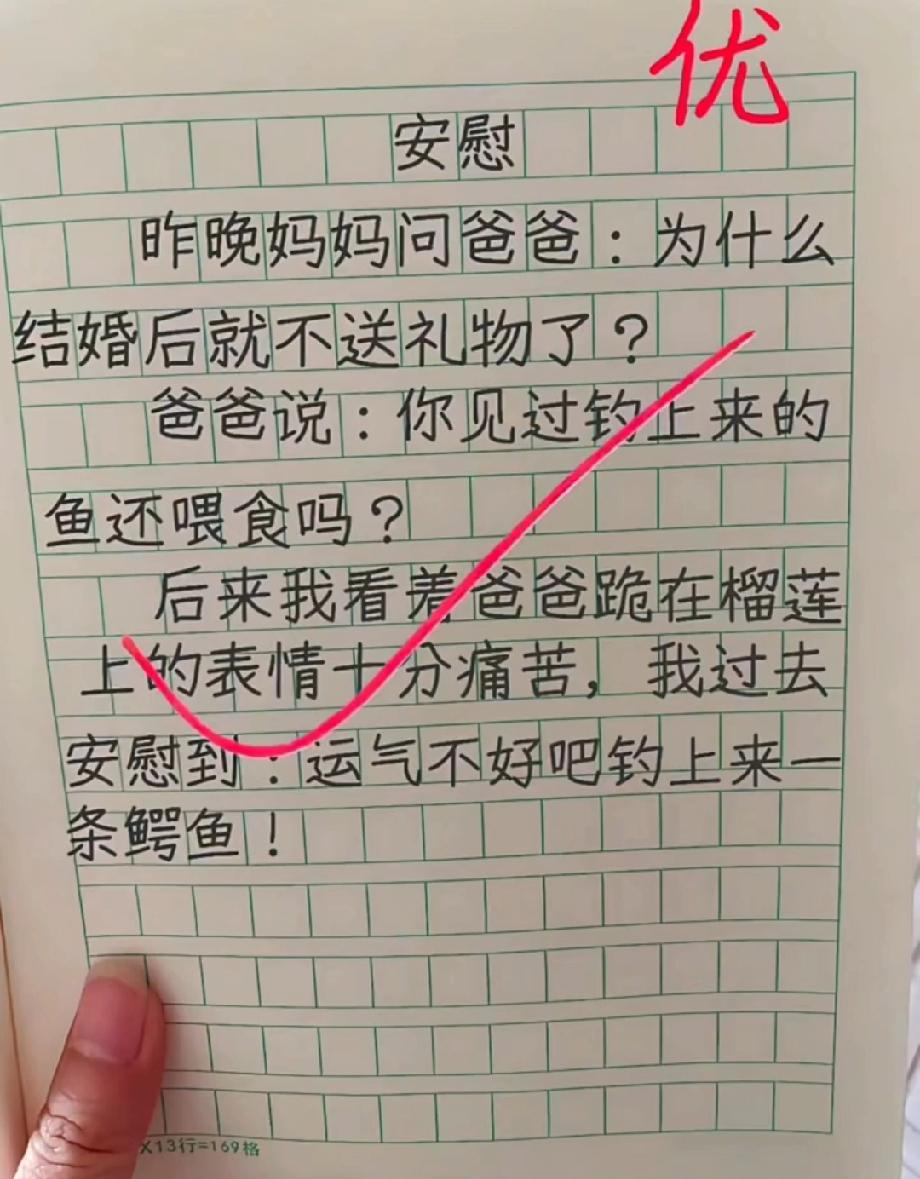 优
安慰
昨晚妈妈问爸爸：为什么
结婚后就不送礼物了？
爸爸说：你见过钓上来的
鱼还喂食吗？
后来我看着爸爸跪在榴莲
上的表情十分痛苦，我过去
安慰到：运气不好吧钓上来一
条鳄鱼！
X13行=169格